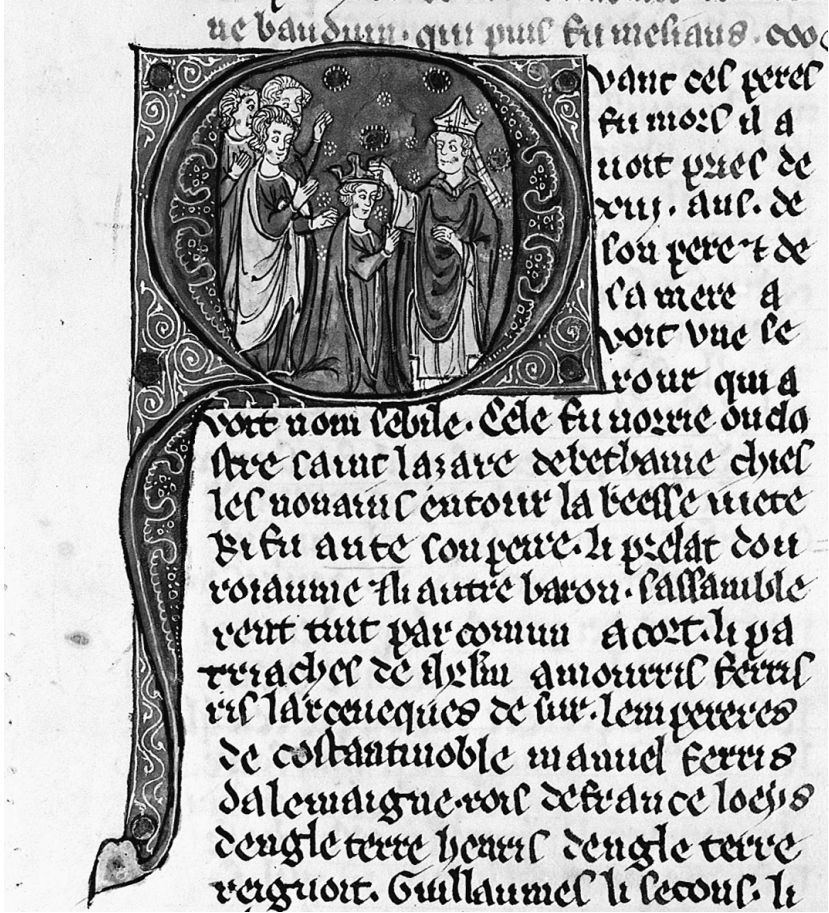 ue bauduin. qui puis fu mesiaus.
Quant ces peres
fu mors il a
uoit pres de
xiij. ans. de
son pere ⁊ de
sa mere a
voit vne se
rour qui a
voit nom sebile. Cele fu norrie ou clo
stre saint lazare de bethanie chies
les nonains entour la beesse yuete
Ki fu ante son pere. li prelat dou
roiaume ⁊ li autre baron. sassamble
rent tuit par comun acort. li pa
triaches de ihrlm amourris ferris
ris larceueques de sur. lempereres
de costantinoble manuel ferris
dalemaigne. rois de france loeys
dengle terre henris dengle terre
reignoit. Guillaumes li secons. li